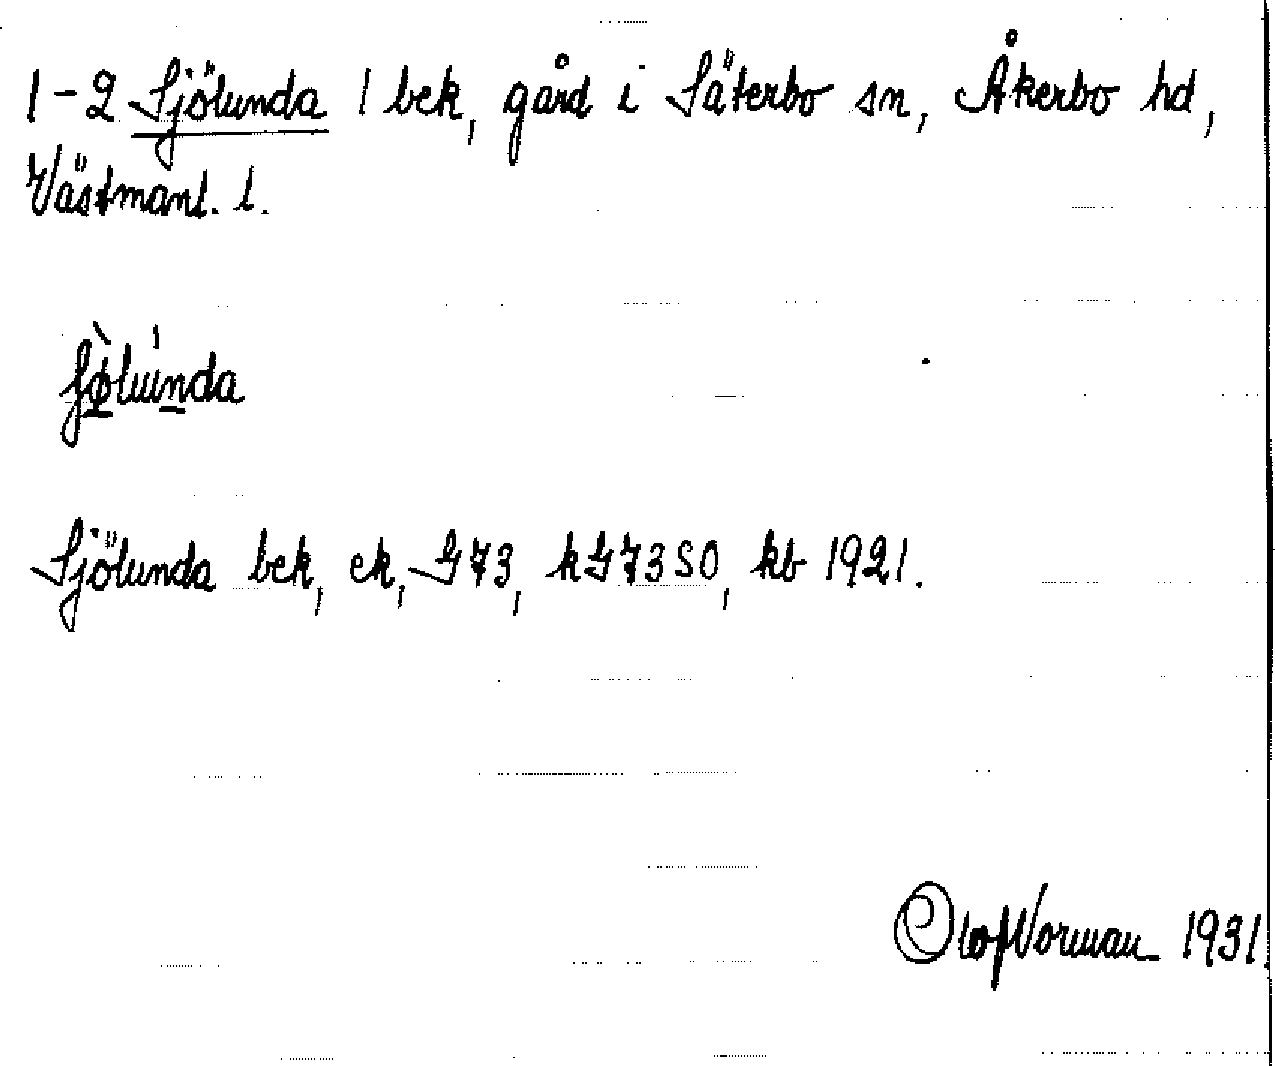 1-2 Sjölunda 1 bek, gård i Säterbo sn, Åkerbo hd,
Västmanl. l.
ʃø̀lúnda
Sjölunda bek, ek, G73, kG73SO, kb 1921.
Olof Norman 1931.